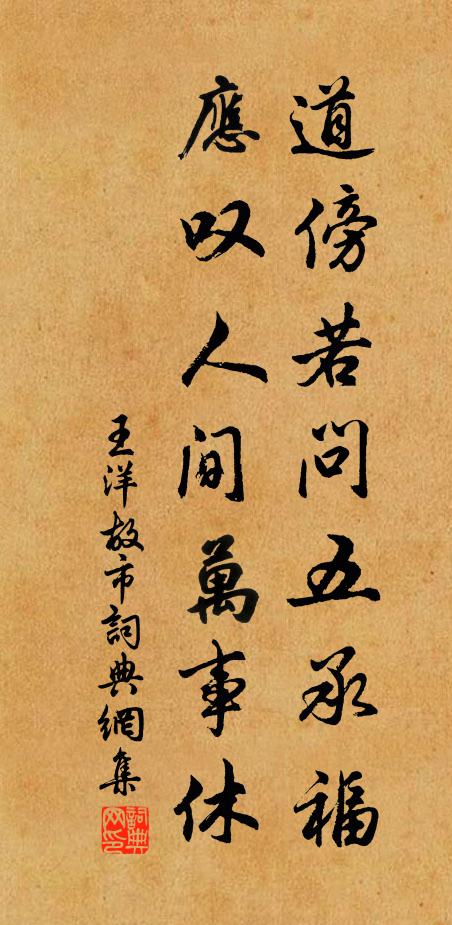 道傍若问五承福
應叹人间萬事休
王洋故市詞典網集
詞典网印